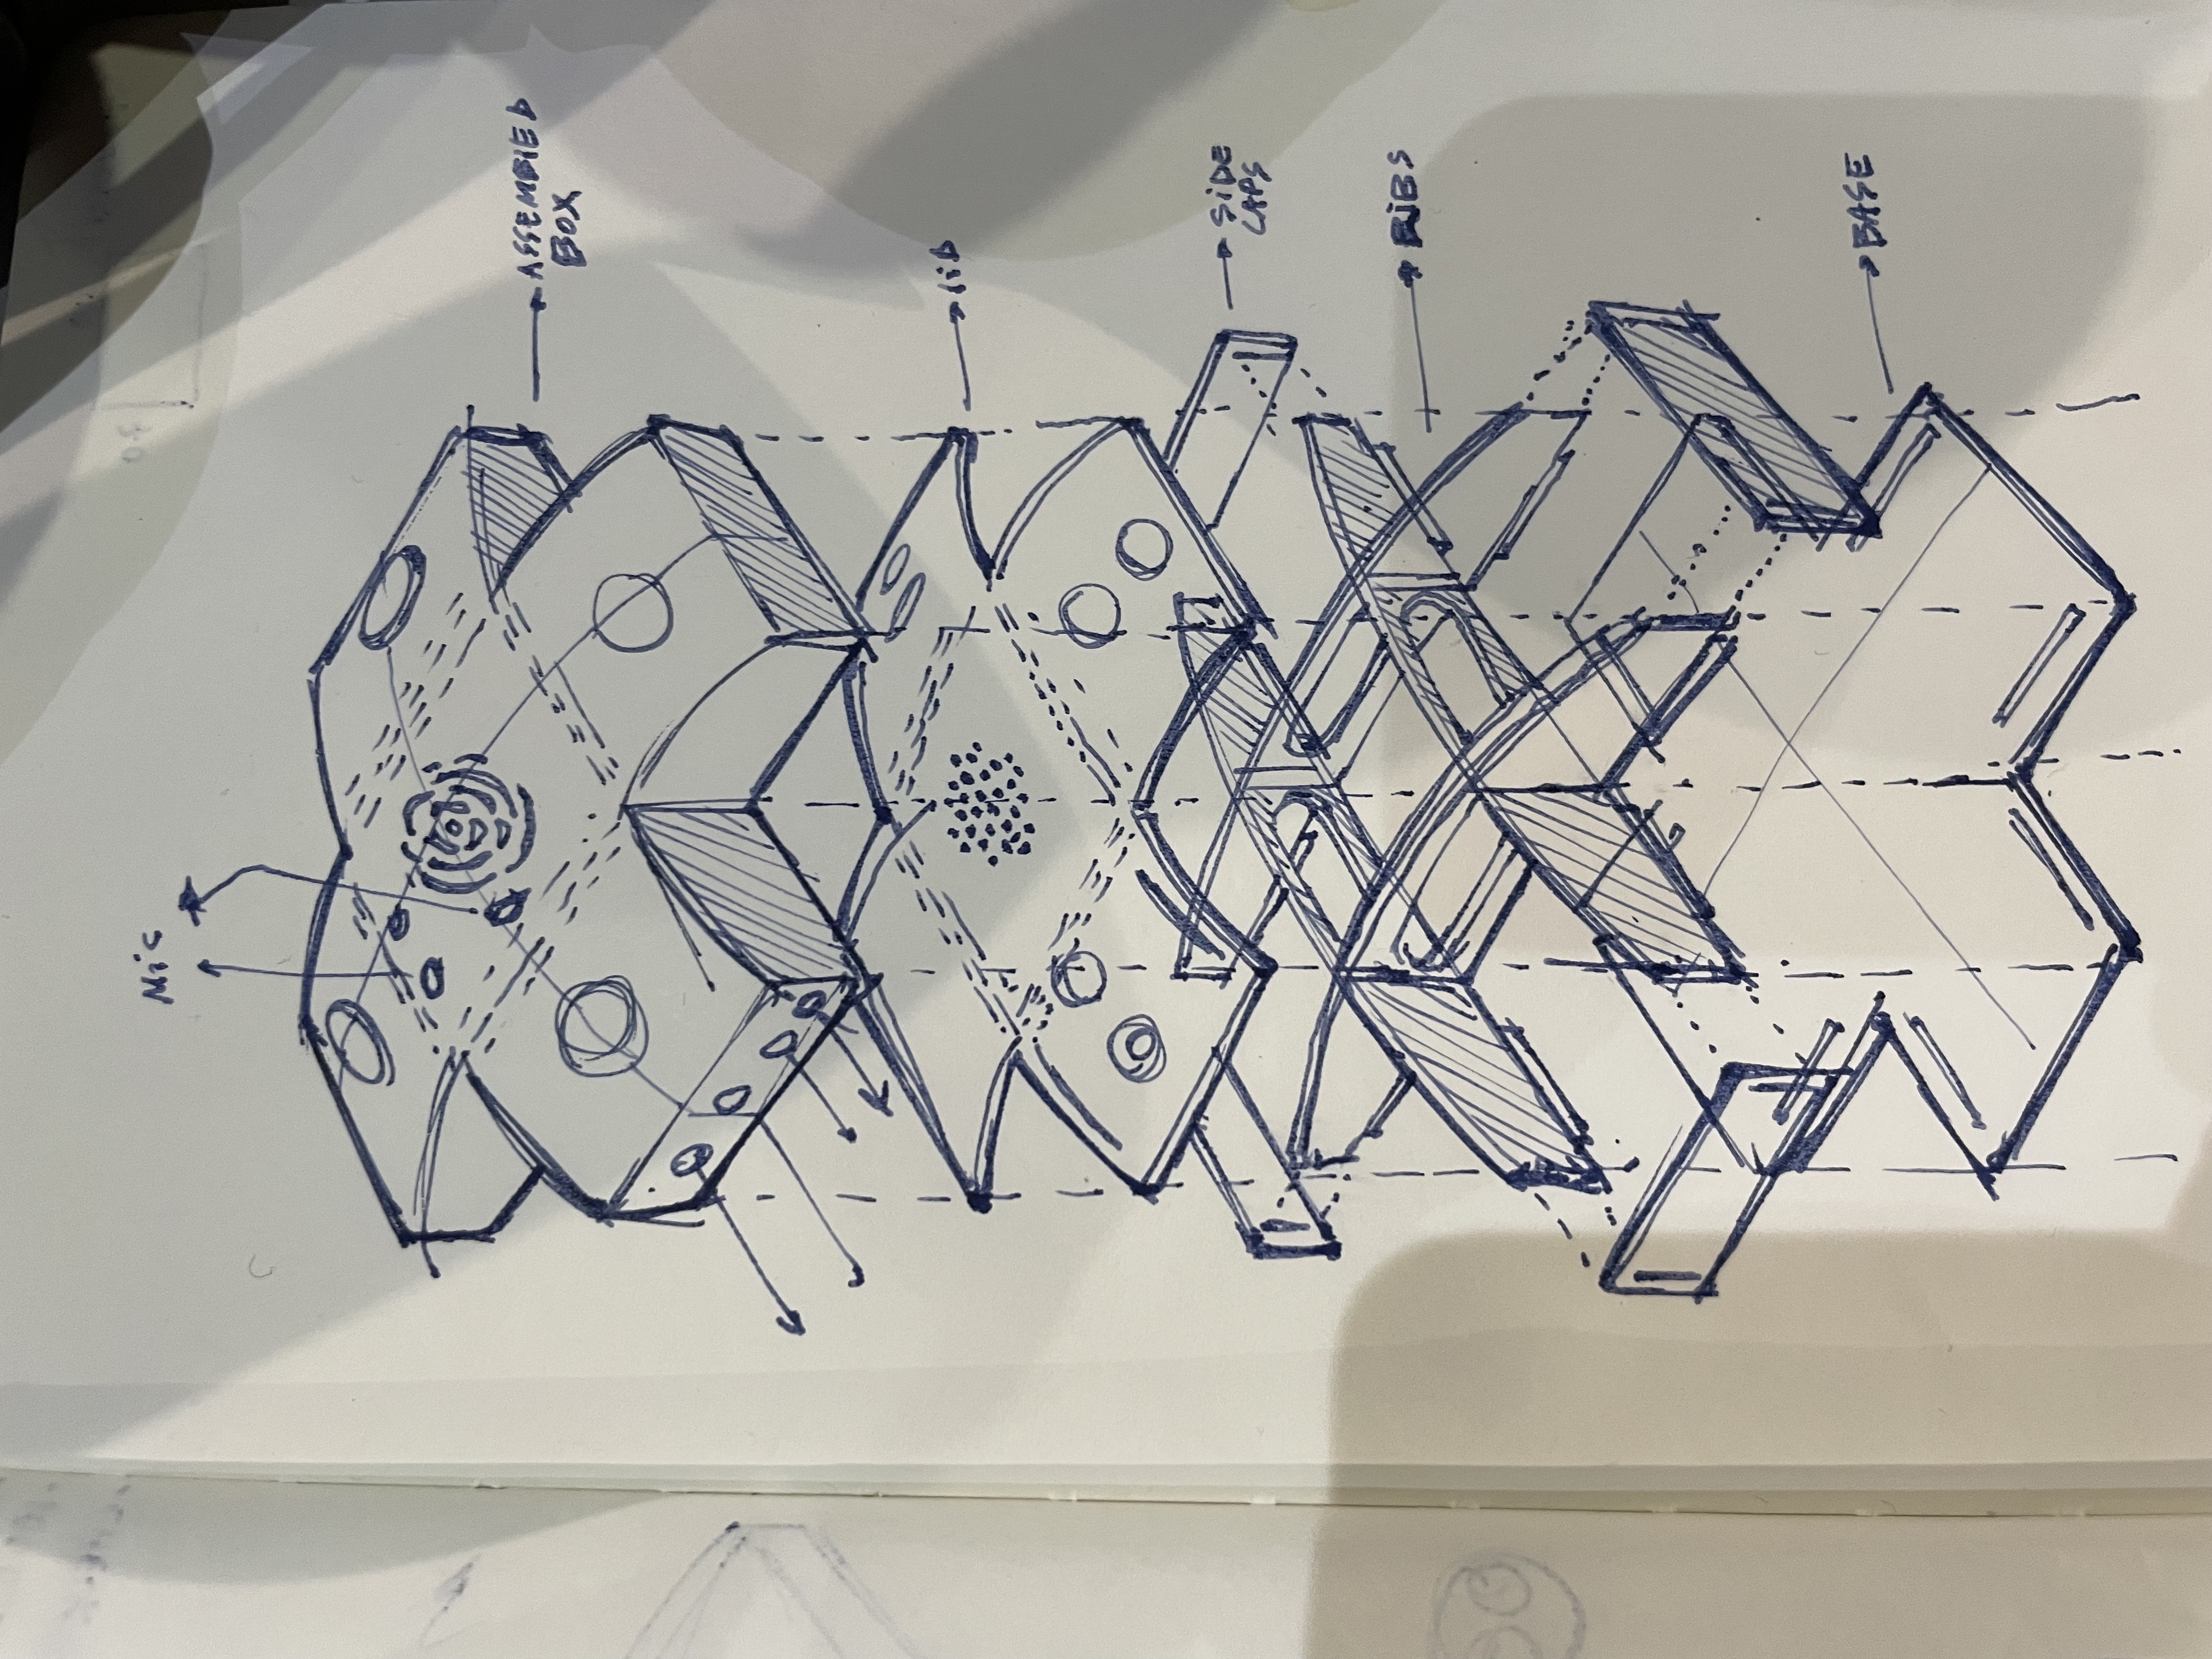 Mic
ASSEMBLED
BOX
LID
SIDE
CAPS
RIBS
BASE